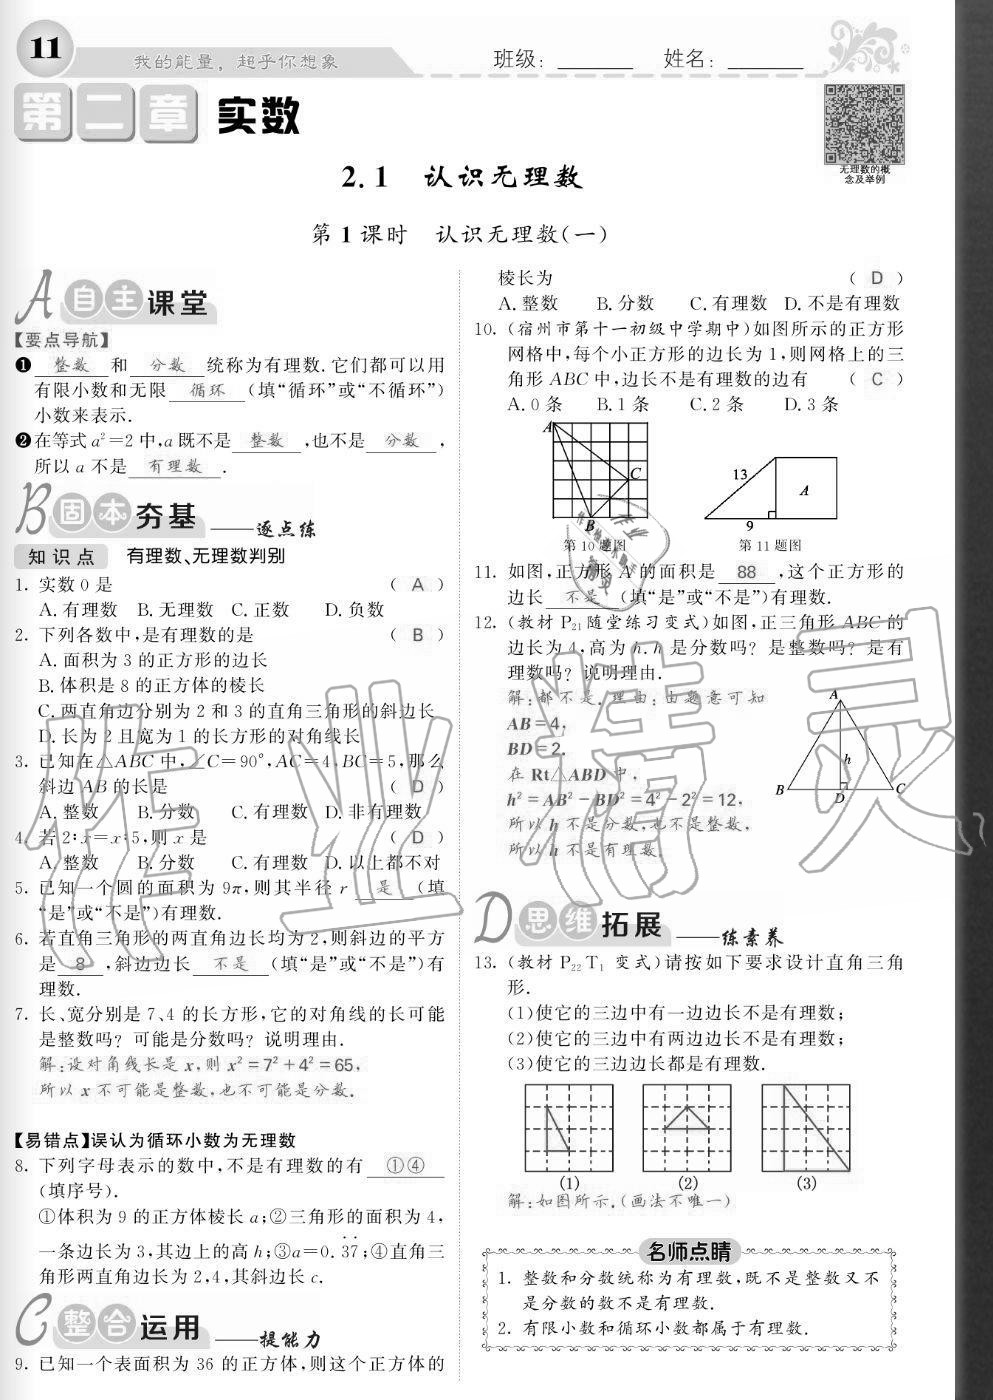 11
我的能量，超乎你想象
班级：
姓名：
第二章 实数
无理数的概
念及举例
2.1 认识无理数
第1课时 认识无理数(一)
A 自主课堂
【要点导航】
❶ 整数 和 分数 统称为有理数.它们都可以用
有限小数和无限 循环 (填“循环”或“不循环”)
小数来表示.
❷在等式a²=2中,a既不是 整数 ,也不是 分数 ,
所以a不是 有理数 .
B 固本夯基 ——逐点练
知识点 有理数、无理数判别
1. 实数0是 ( A )
A.有理数 B.无理数 C.正数 D.负数
2. 下列各数中,是有理数的是 ( B )
A.面积为3的正方形的边长
B.体积是8的正方体的棱长
C.两直角边分别为2和3的直角三角形的斜边长
D.长为2且宽为1的长方形的对角线长
3. 已知在△ABC中,∠C=90°,AC=4,BC=5,那么
斜边AB的长是 ( D )
A.整数 B.分数 C.有理数 D.非有理数
4. 若2∶x=x∶5,则x是 ( D )
A.整数 B.分数 C.有理数 D.以上都不对
5. 已知一个圆的面积为9π,则其半径r 是 (填
“是”或“不是”)有理数.
6. 若直角三角形的两直角边长均为2,则斜边的平方
是 8 ,斜边边长 不是 (填“是”或“不是”)有
理数.
7. 长、宽分别是7、4的长方形,它的对角线的长可能
是整数吗？可能是分数吗？说明理由.
解:设对角线长是x,则x²=7²+4²=65,
所以x不可能是整数,也不可能是分数.
【易错点】误认为循环小数为无理数
8. 下列字母表示的数中,不是有理数的有 ①④
(填序号).
①体积为9的正方体棱长a;②三角形的面积为4,
一条边长为3,其边上的高h;③a=0.3̇7̇;④直角三
角形两直角边长为2,4,其斜边长c.
C 整合运用 ——提能力
9. 已知一个表面积为36的正方体,则这个正方体的
棱长为 ( D )
A.整数 B.分数 C.有理数 D.不是有理数
10. (宿州市第十一初级中学期中)如图所示的正方形
网格中,每个小正方形的边长为1,则网格上的三
角形ABC中,边长不是有理数的边有 ( C )
A.0条 B.1条 C.2条 D.3条
A
C
B
第10题图
13
A
9
第11题图
11. 如图,正方形A的面积是 88 ,这个正方形的
边长 不是 (填“是”或“不是”)有理数.
12. (教材P21随堂练习变式)如图,正三角形ABC的
边长为4,高为h.h是分数吗？是整数吗？是有
理数吗？说明理由.
解:都不是.理由:由题意可知
AB=4,
BD=2.
在Rt△ABD中,
h²=AB²-BD²=4²-2²=12,
所以h不是分数,也不是整数,
所以h不是有理数.
A
h
B
D
C
D 思维拓展 ——练素养
13. (教材P22T1变式)请按如下要求设计直角三角
形.
(1)使它的三边中有一边边长不是有理数;
(2)使它的三边中有两边边长不是有理数;
(3)使它的三边边长都是有理数.
(1)
(2)
(3)
解:如图所示.(画法不唯一)
名师点睛
1. 整数和分数统称为有理数,既不是整数又不
是分数的数不是有理数.
2. 有限小数和循环小数都属于有理数.
作业精灵